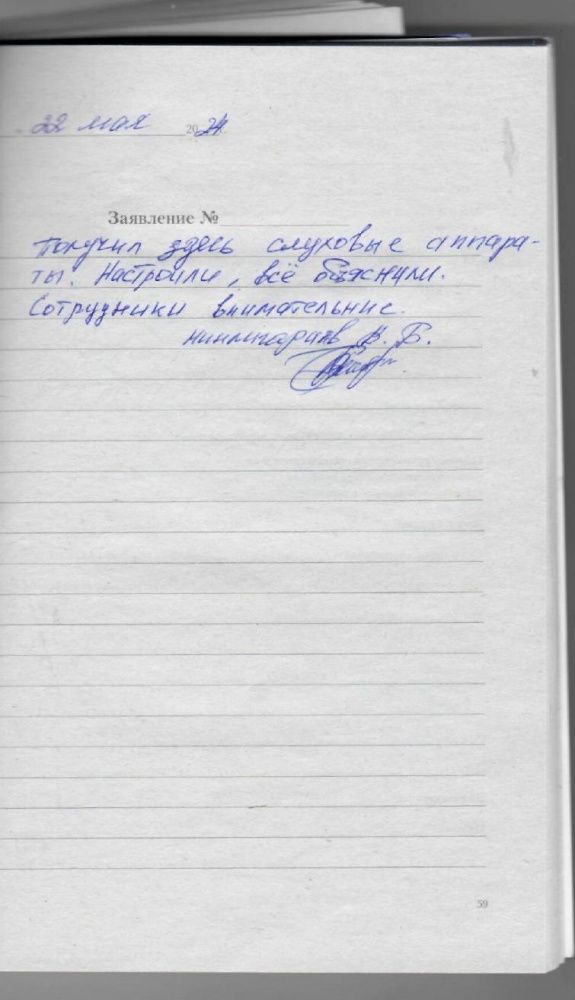 22 мая 2024
Заявление №
Получил здесь слуховые аппара-
ты. Настроили, всё объяснили.
Сотрудники внимательние.
В. Б.
59